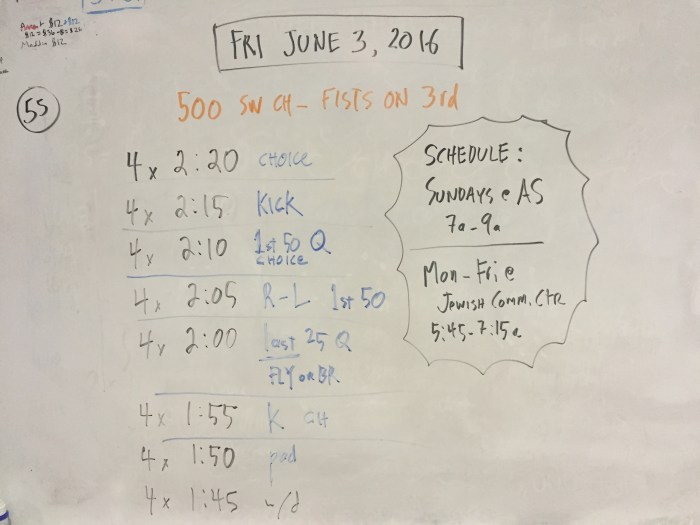 FRI JUNE 3, 2016
55
500 SW CH - FISTS ON 3rd
4 x 2:20 CHOICE
4 x 2:15 KICK
4 x 2:10 1st 50 Q
CHOICE
4 x 2:05 R-L 1st 50
4 x 2:00 last 25 Q
FLY OR BR.
4 x 1:55 K CH
4 x 1:50 pad
4 x 1:45 w/d
SCHEDULE:
SUNDAYS @ AS
7a-9a
Mon-Fri @
JEWISH Comm. CTR
5:45-7:15a